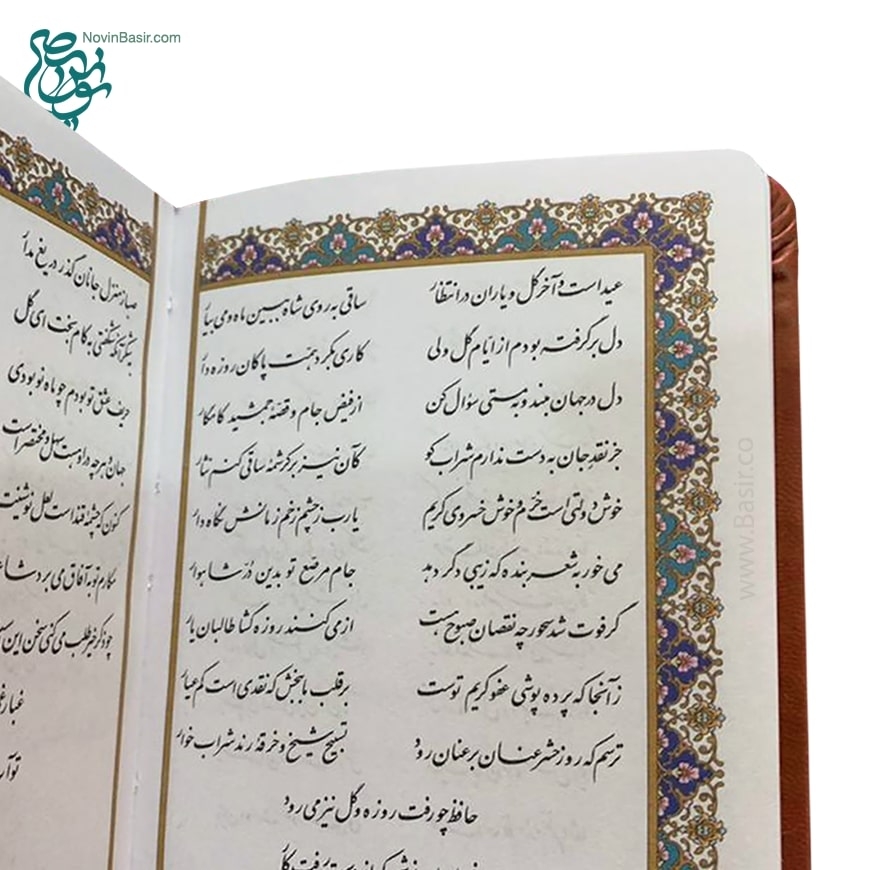 NovinBasir.com
عید است و آخر گل و یاران در انتظار ساقی به روی شاه ببین ماه و می بیار
دل برگرفته بودم از ایام گل ولی کاری بکرد همت پاکان روزه دار
دل در جهان مبند و به مستی سؤال کن از فیض جام و قصّهٔ جمشید کامگار
جز نقد جان به دست ندارم شراب کو کآن نیز بر کرشمهٔ ساقی کنم نثار
خوش دولتی است خرّم و خوش خسروی کریم یارب ز چشم زخم زمانش نگاه دار
می خور به شعر بنده که زیبی دگر دهد جام مرصّع تو بدین دُرّ شاهوار
گر فوت شد سحور چه نقصان صبوح هست از می کنند روزه گشا طالبان یار
ز آنجا که پرده پوشی عفو کریم توست بر قلب ما ببخش که نقدی است کم عیار
ترسم که روز حشر عنان بر عنان رود تسبیح شیخ و خرقهٔ رند شراب خوار
حافظ چو رفت روزه و گل نیز می رود
صبا ز منزل جانان گذر دریغ مدار
به شکر آنکه شکفتی به کام بخت ای گل
حریف عشق تو بودم چو ماه نو بودی
جهان و هر چه در او هست سهل و مختصر است
کنون که چشمهٔ قند است لعل نوشینت
مکارم تو به آفاق می برد شاعر
چو ذکر خیر طلب می کنی سخن این
غبار
www.Basir.co